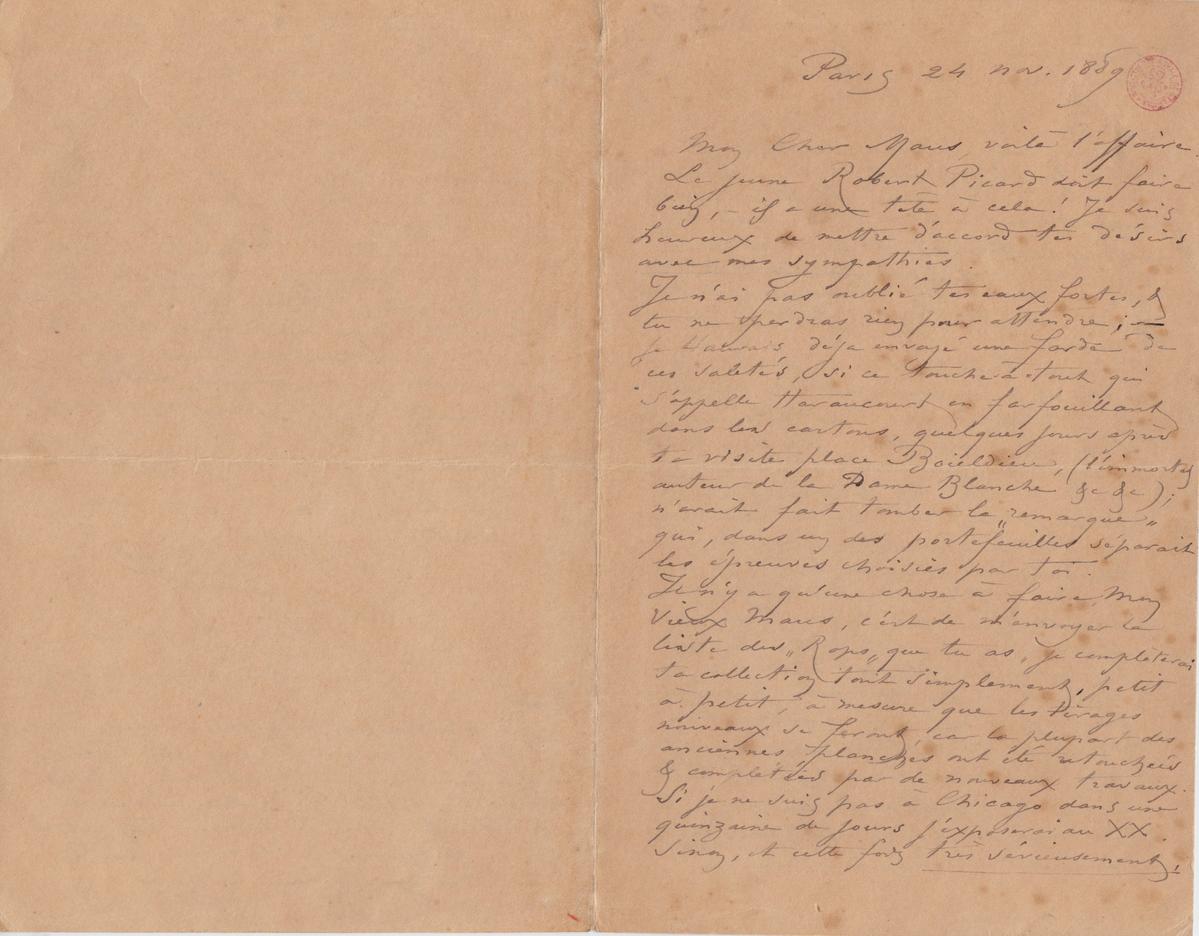 Paris 24 nov. 1889
Mon Cher Maus, voilà l'affaire.
Le jeune Robert Picard doit faire
bien, – il a une tête à cela! Je suis
heureux de mettre d'accord tes désirs
avec mes sympathies.
Je n'ai pas oublié tes eaux fortes, &
tu ne perdras rien pour attendre; —
je t'aurais déja envoyé une farde de
ces saletés, si ce touche-à-tout qui
s'appelle Haraucourt en farfouillant
dans les cartons, quelques jours après
ta visite place Boieldieu, (l'immortel
auteur de la Dame Blanche &c &c);
n'avait fait tomber la „remarque„
qui, dans un des portefeuilles séparait
les épreuves choisies par toi.
Il n'y a qu'une chose à faire, mon
vieux Maus, c'est de m'envoyer la
liste des „Rops„ que tu as, je complèterai
ta collection tout simplement, petit
à petit, à mesure que les tirages
nouveaux se feront, car la plupart des
anciennes planches ont été retouchées
& complétées par de nouveaux travaux.
Si je ne suis pas à Chicago dans une
quinzaine de jours j'exposerai au XX.
Sinon, et cette fois très sérieusement,